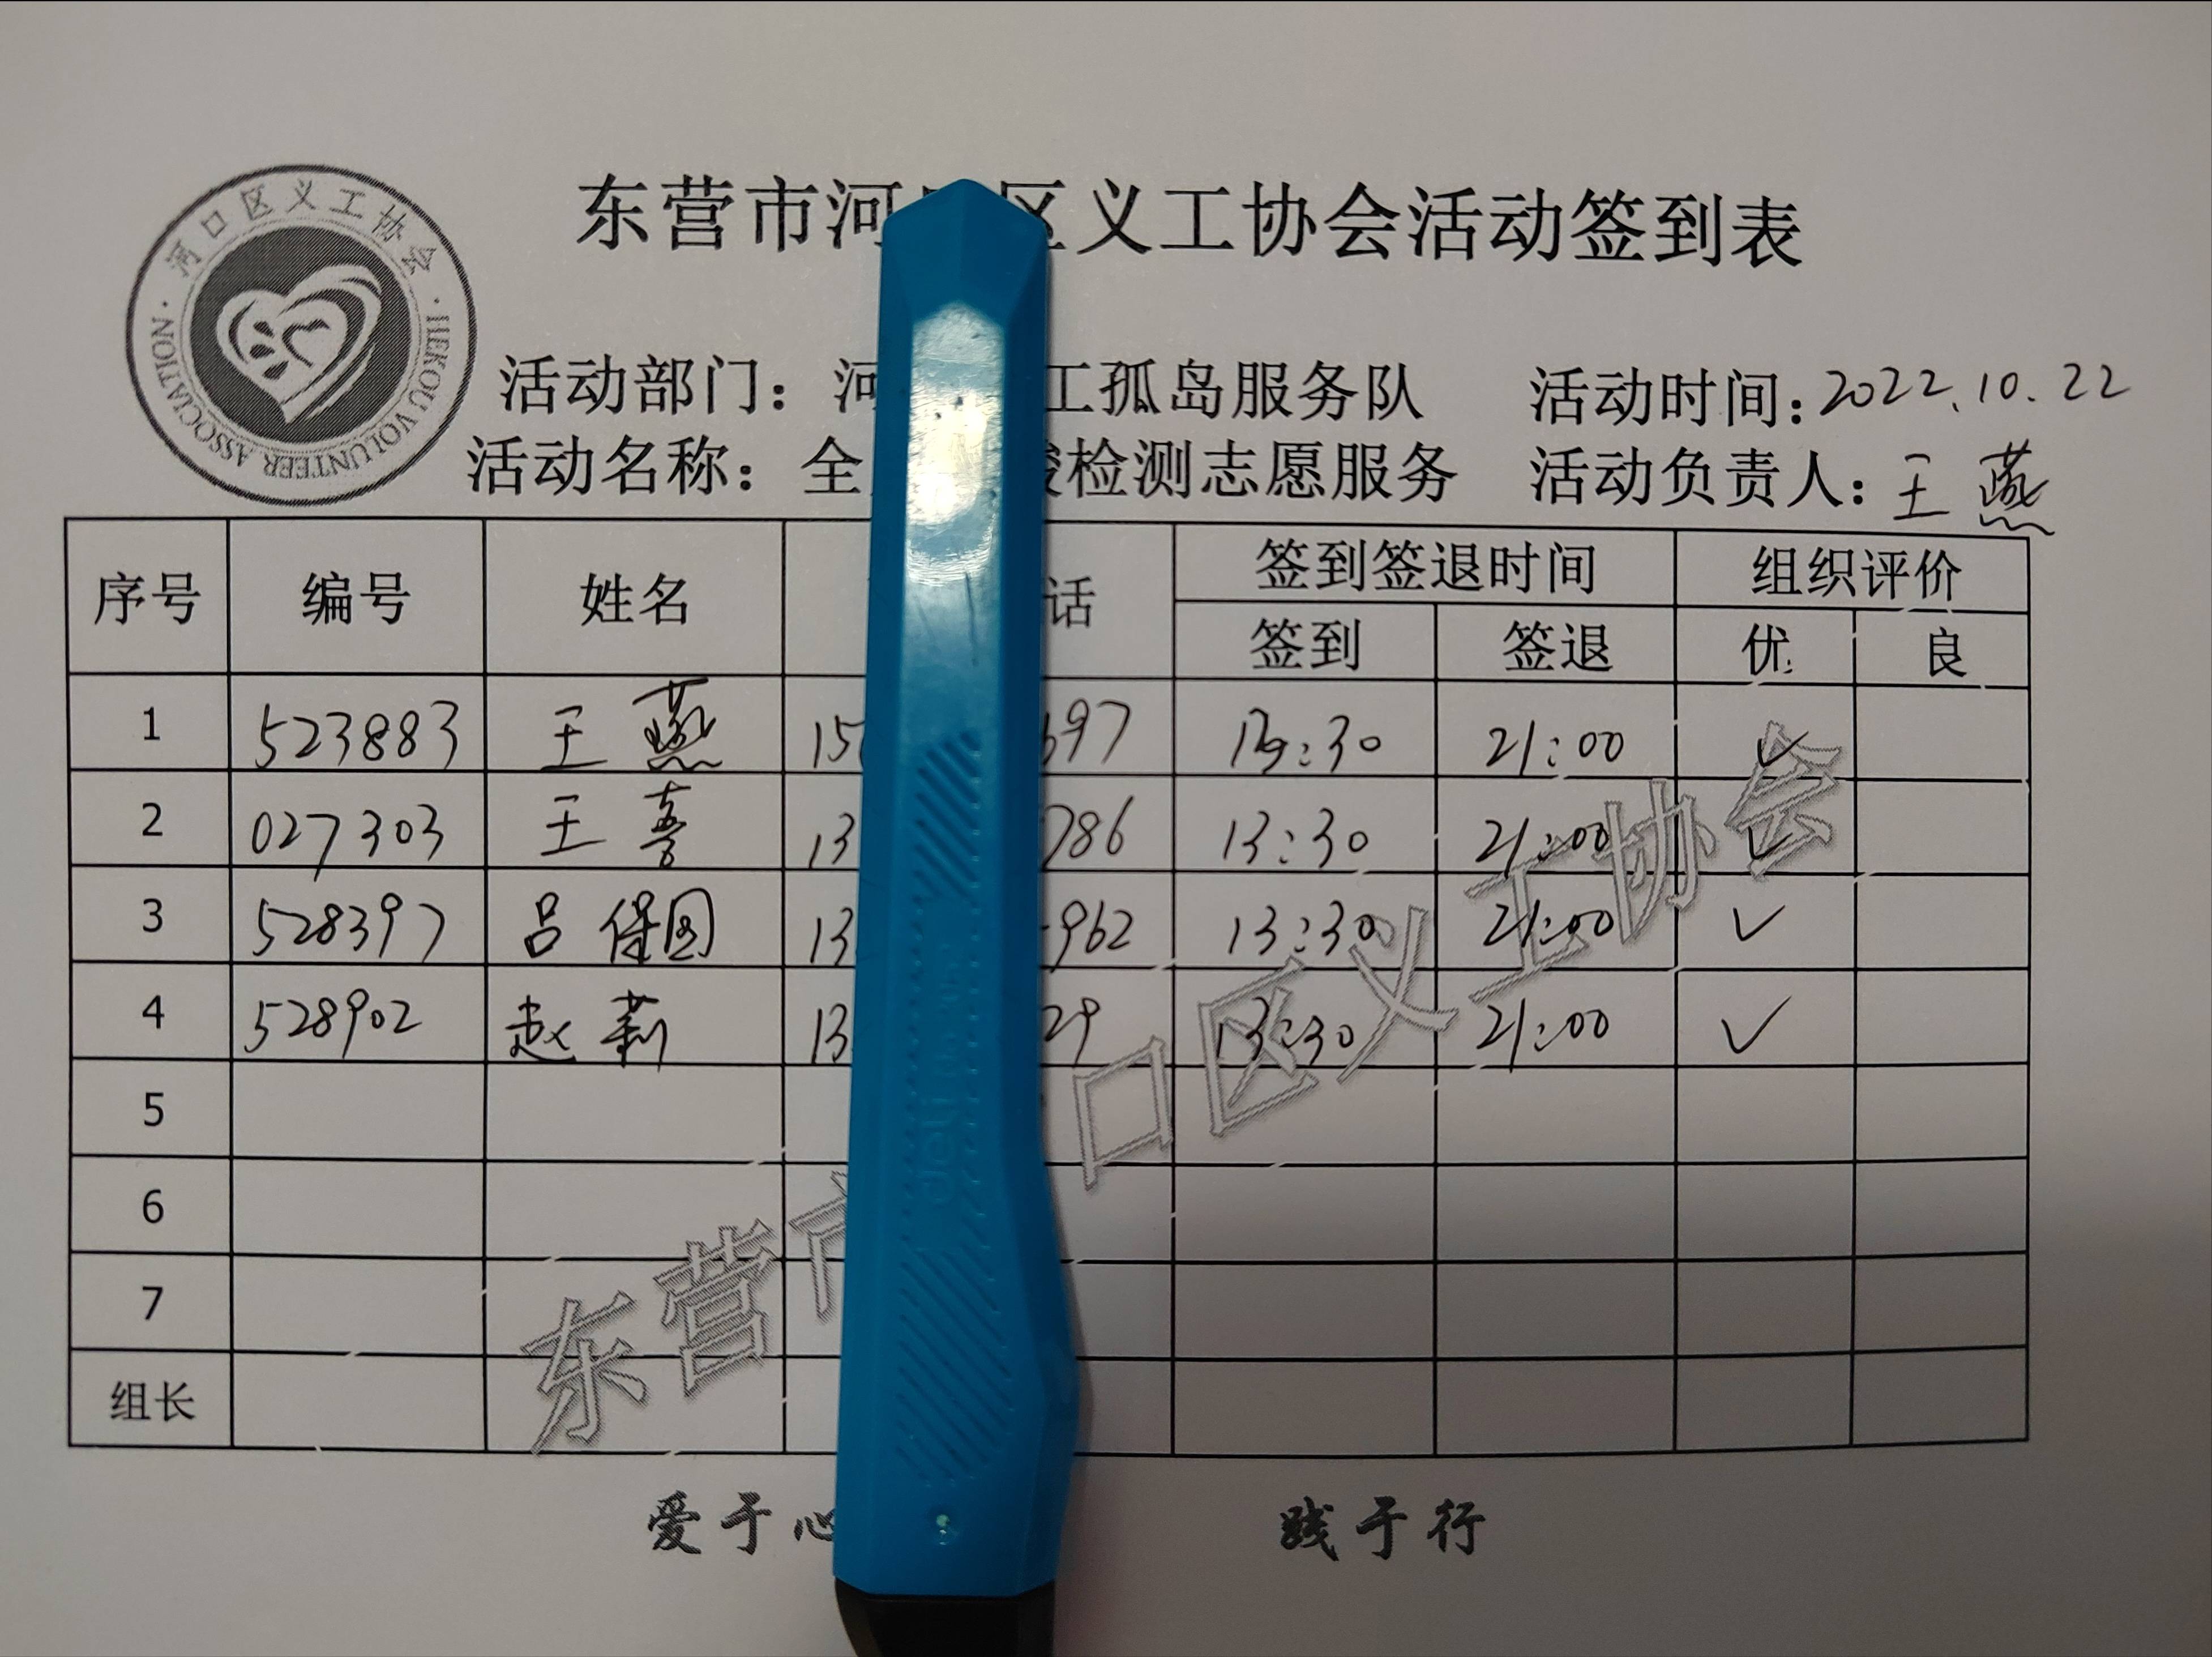 河口区义工协会
HEKOU VOLUNTEER ASSOCIATION
东营市河 区义工协会活动签到表
活动部门：河 工孤岛服务队 活动时间：2022.10.22
活动名称：全 酸检测志愿服务 活动负责人：王燕
序号 编号 姓名 话 签到签退时间 组织评价
签到 签退 优 良
1 523883 王燕 15 697 13:30 21:00 ✓
2 027303 王 13 786 13:30 21:00 ✓
3 528397 吕保国 13 962 13:30 21:00 ✓
4 528902 赵莉 13 29 13:30 21:00 ✓
5
6
7
组长
东营市 口区义工协会
爱于心 践于行
deli